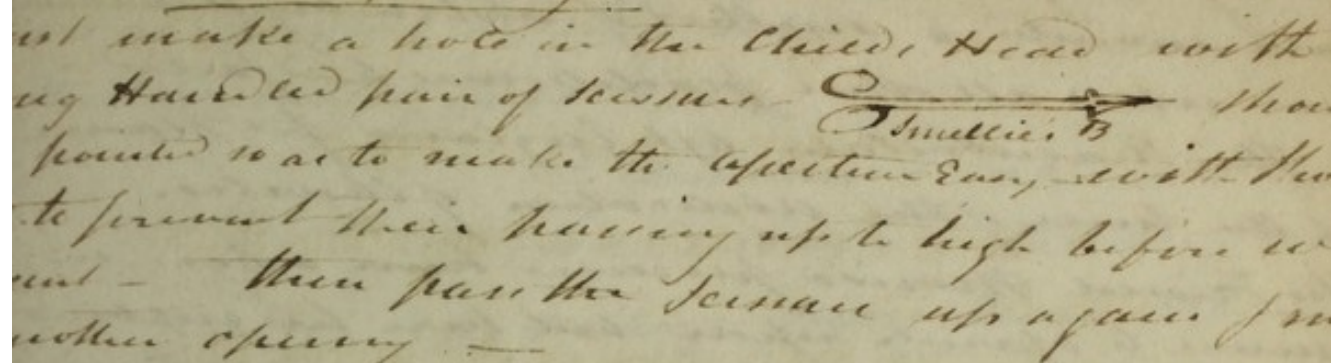 make a hole in the Childs Head with
Handled pair of scissars
Smellie's B
pointed so as to make the aperture Easy with
to prevent their passing up to high before
then pass the scissars up again
another opening